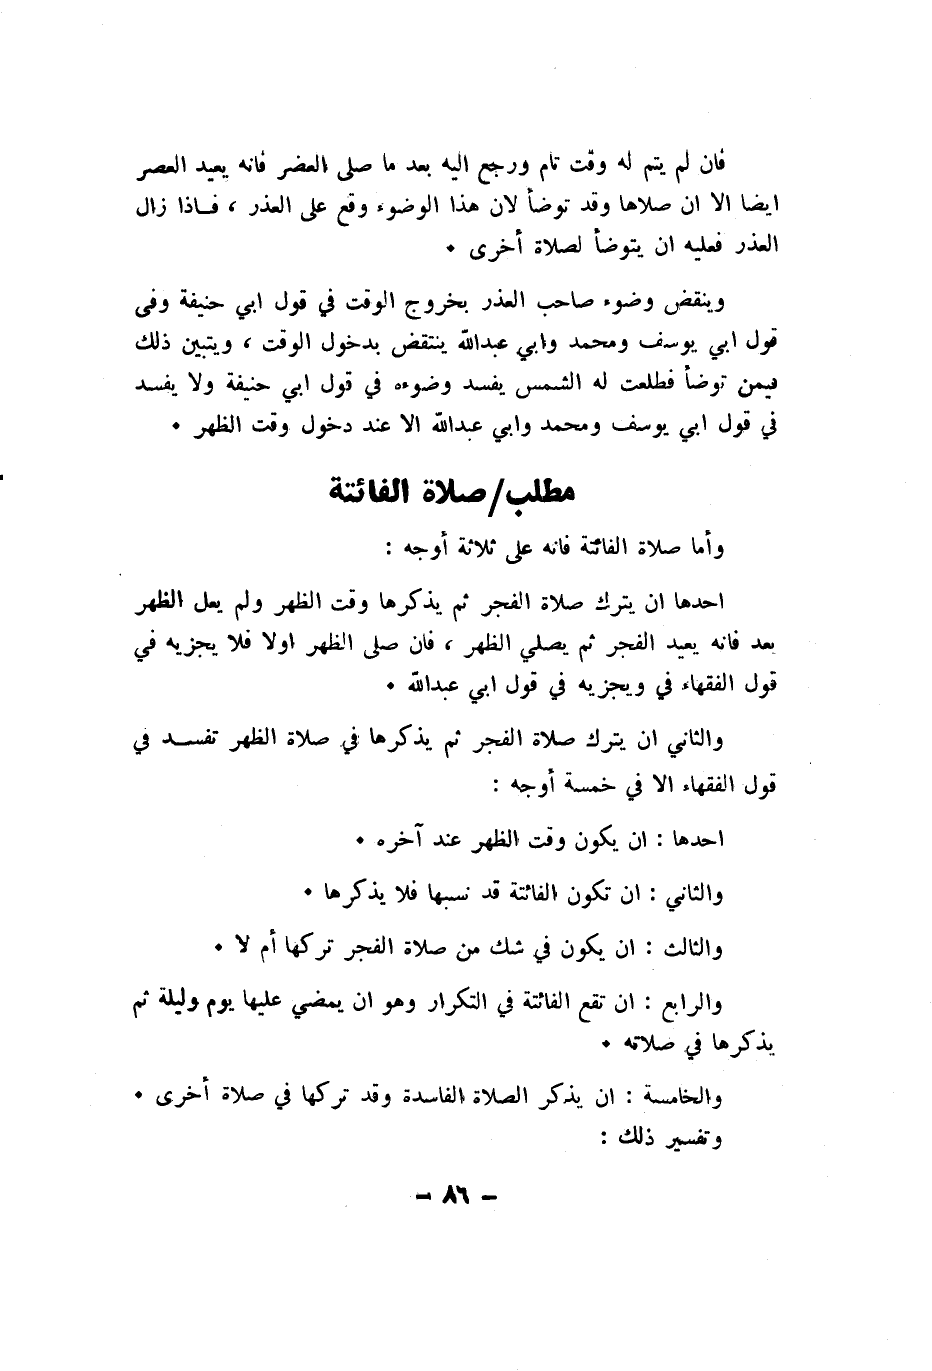 فان لم يتم له وقت تام ورجع اليه بعد ما صلى العضر فانه يعيد العصر
ايضا الا ان صلاها وقد توضأ لان هذا الوضوء وقع على العذر ، فــاذا زال
العذر فعليه ان يتوضأ لصلاة أخرى ٠
وينقض وضوء صاحب العذر بخروج الوقت في قول ابي حنيفة وفى
قول ابي يوسف ومحمد وابي عبدالله ينتقض بدخول الوقت ، ويتبين ذلك
فيمن توضأ فطلعت له الشمس يفسد وضوءه في قول ابي حنيفة ولا يفسد
في قول ابي يوسف ومحمد وابي عبدالله الا عند دخول وقت الظهر ٠
مطلب/صلاة الفائتة
وأما صلاة الفائتة فانه على ثلاثة أوجه :
احدها ان يترك صلاة الفجر ثم يذكرها وقت الظهر ولم يعل الظهر
بعد فانه يعيد الفجر ثم يصلي الظهر ، فان صلى الظهر اولا فلا يجزيه في
قول الفقهاء في ويجزيه في قول ابي عبدالله ٠
والثاني ان يترك صلاة الفجر ثم يذكرها في صلاة الظهر تفســد في
قول الفقهاء الا في خمسة أوجه :
احدها : ان يكون وقت الظهر عند آخره ٠
والثاني : ان تكون الفائتة قد نسيها فلا يذكرها ٠
والثالث : ان يكون في شك من صلاة الفجر تركها أم لا ٠
والرابع : ان تقع الفائتة في التكرار وهو ان يمضي عليها يوم وليلة ثم
يذكرها في صلاته ٠
والخامسة : ان يذكر الصلاة الفاسدة وقد تركها في صلاة أخرى ٠
وتفسير ذلك :
– ٨٦ –